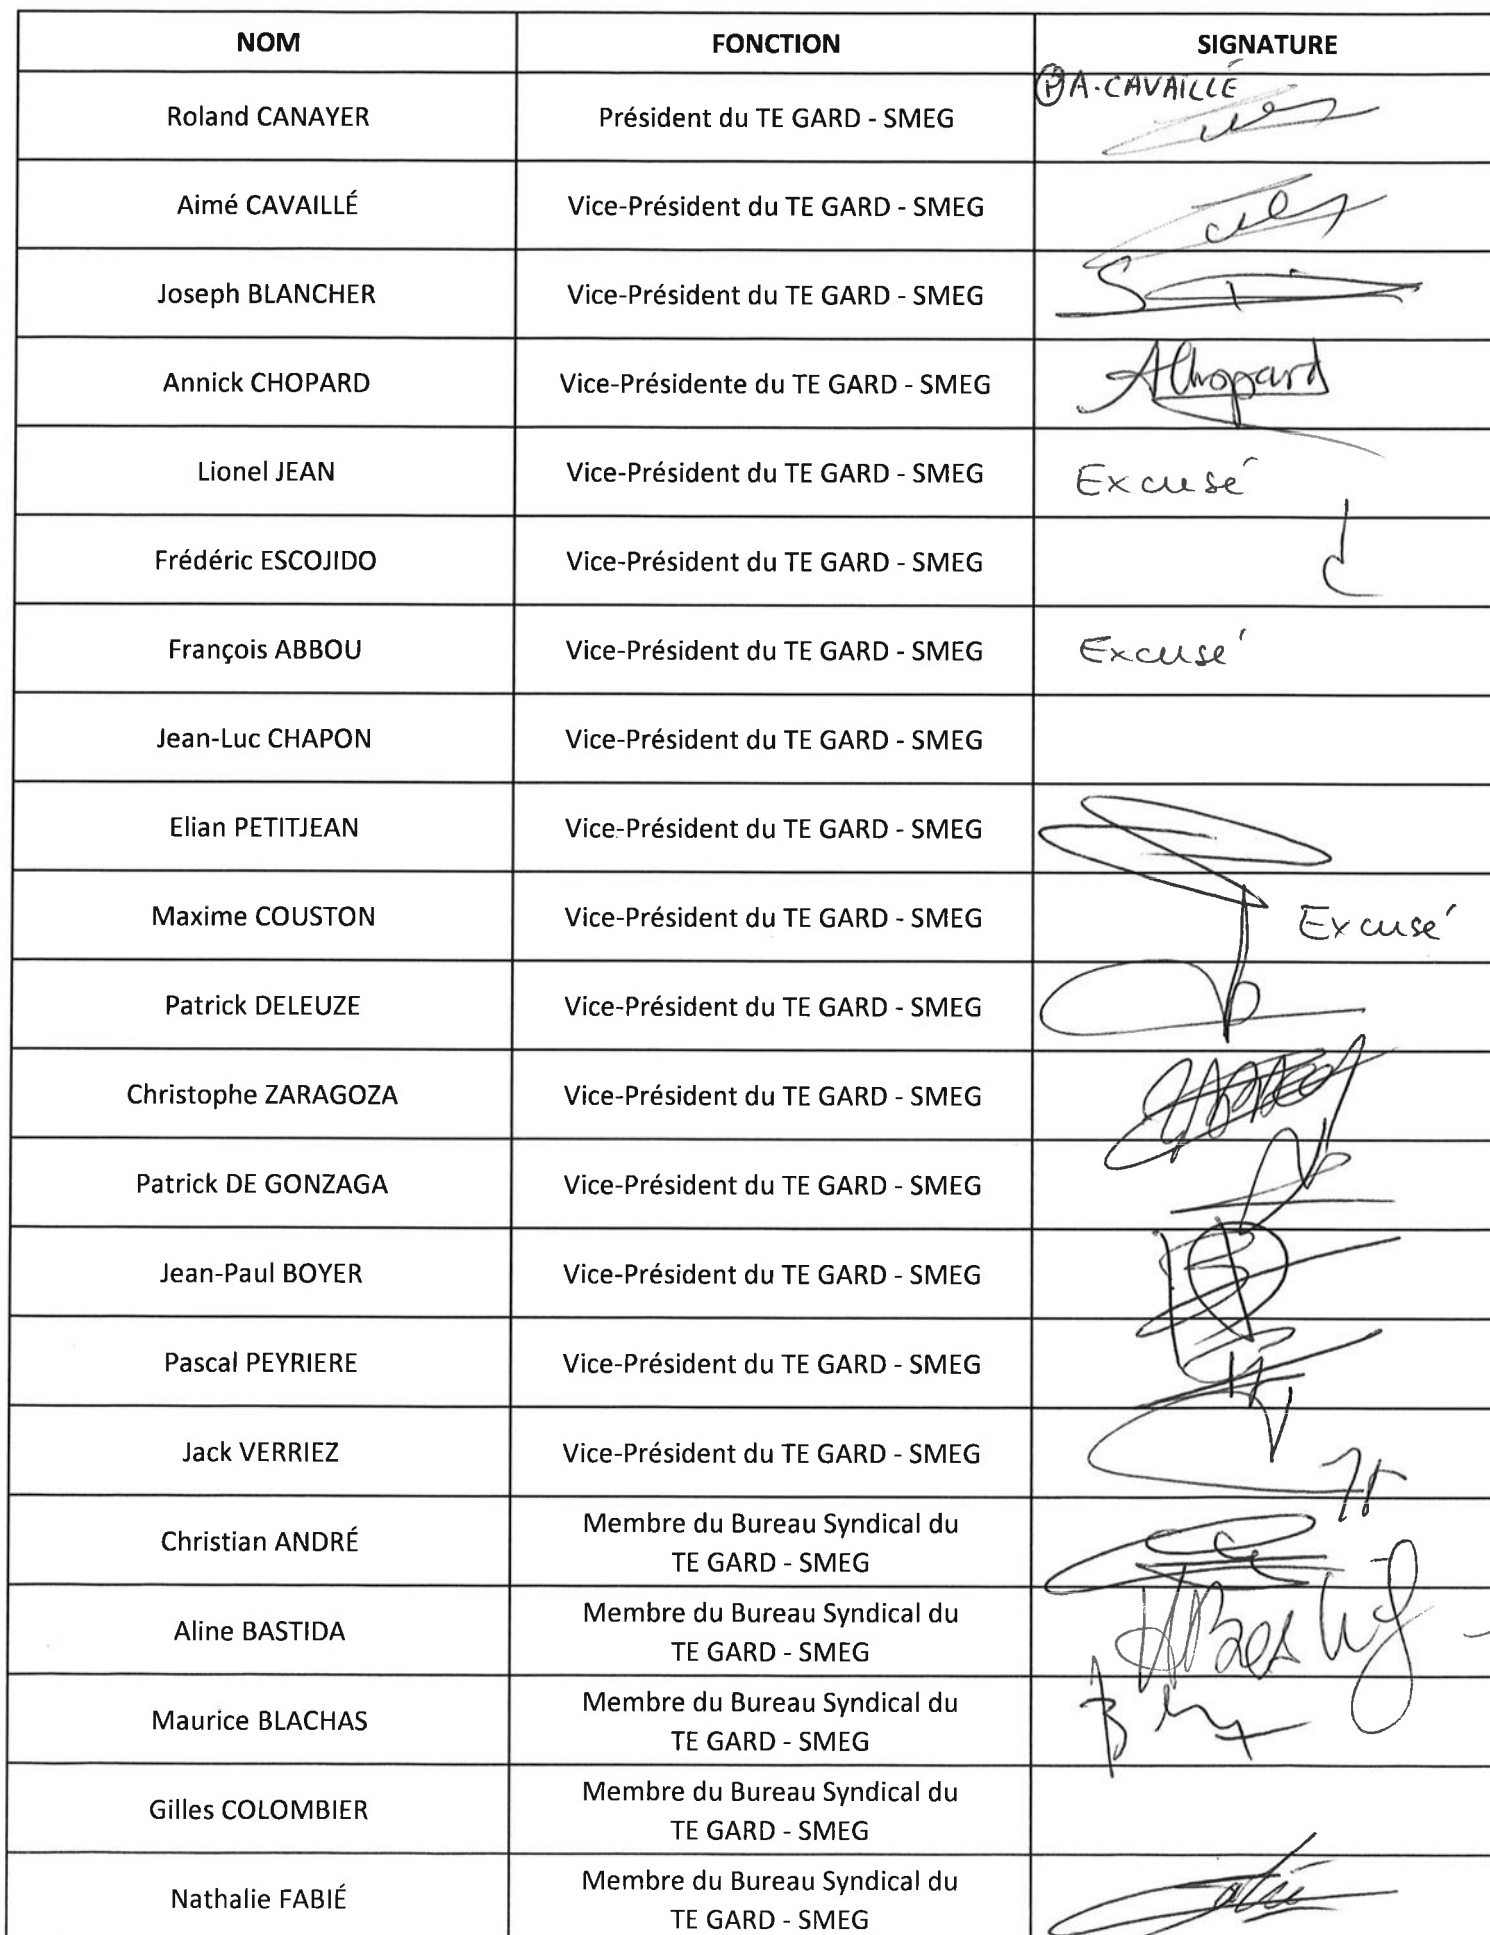 NOM FONCTION SIGNATURE
Roland CANAYER Président du TE GARD - SMEG Ⓟ A. CAVAILLÉ
Aimé CAVAILLÉ Vice-Président du TE GARD - SMEG
Joseph BLANCHER Vice-Président du TE GARD - SMEG
Annick CHOPARD Vice-Présidente du TE GARD - SMEG AChopard
Lionel JEAN Vice-Président du TE GARD - SMEG Excusé
Frédéric ESCOJIDO Vice-Président du TE GARD - SMEG
François ABBOU Vice-Président du TE GARD - SMEG Excusé
Jean-Luc CHAPON Vice-Président du TE GARD - SMEG
Elian PETITJEAN Vice-Président du TE GARD - SMEG
Maxime COUSTON Vice-Président du TE GARD - SMEG Excusé
Patrick DELEUZE Vice-Président du TE GARD - SMEG
Christophe ZARAGOZA Vice-Président du TE GARD - SMEG
Patrick DE GONZAGA Vice-Président du TE GARD - SMEG
Jean-Paul BOYER Vice-Président du TE GARD - SMEG
Pascal PEYRIERE Vice-Président du TE GARD - SMEG
Jack VERRIEZ Vice-Président du TE GARD - SMEG
Christian ANDRÉ Membre du Bureau Syndical du
TE GARD - SMEG
Aline BASTIDA Membre du Bureau Syndical du
TE GARD - SMEG
Maurice BLACHAS Membre du Bureau Syndical du
TE GARD - SMEG
Gilles COLOMBIER Membre du Bureau Syndical du
TE GARD - SMEG
Nathalie FABIÉ Membre du Bureau Syndical du
TE GARD - SMEG